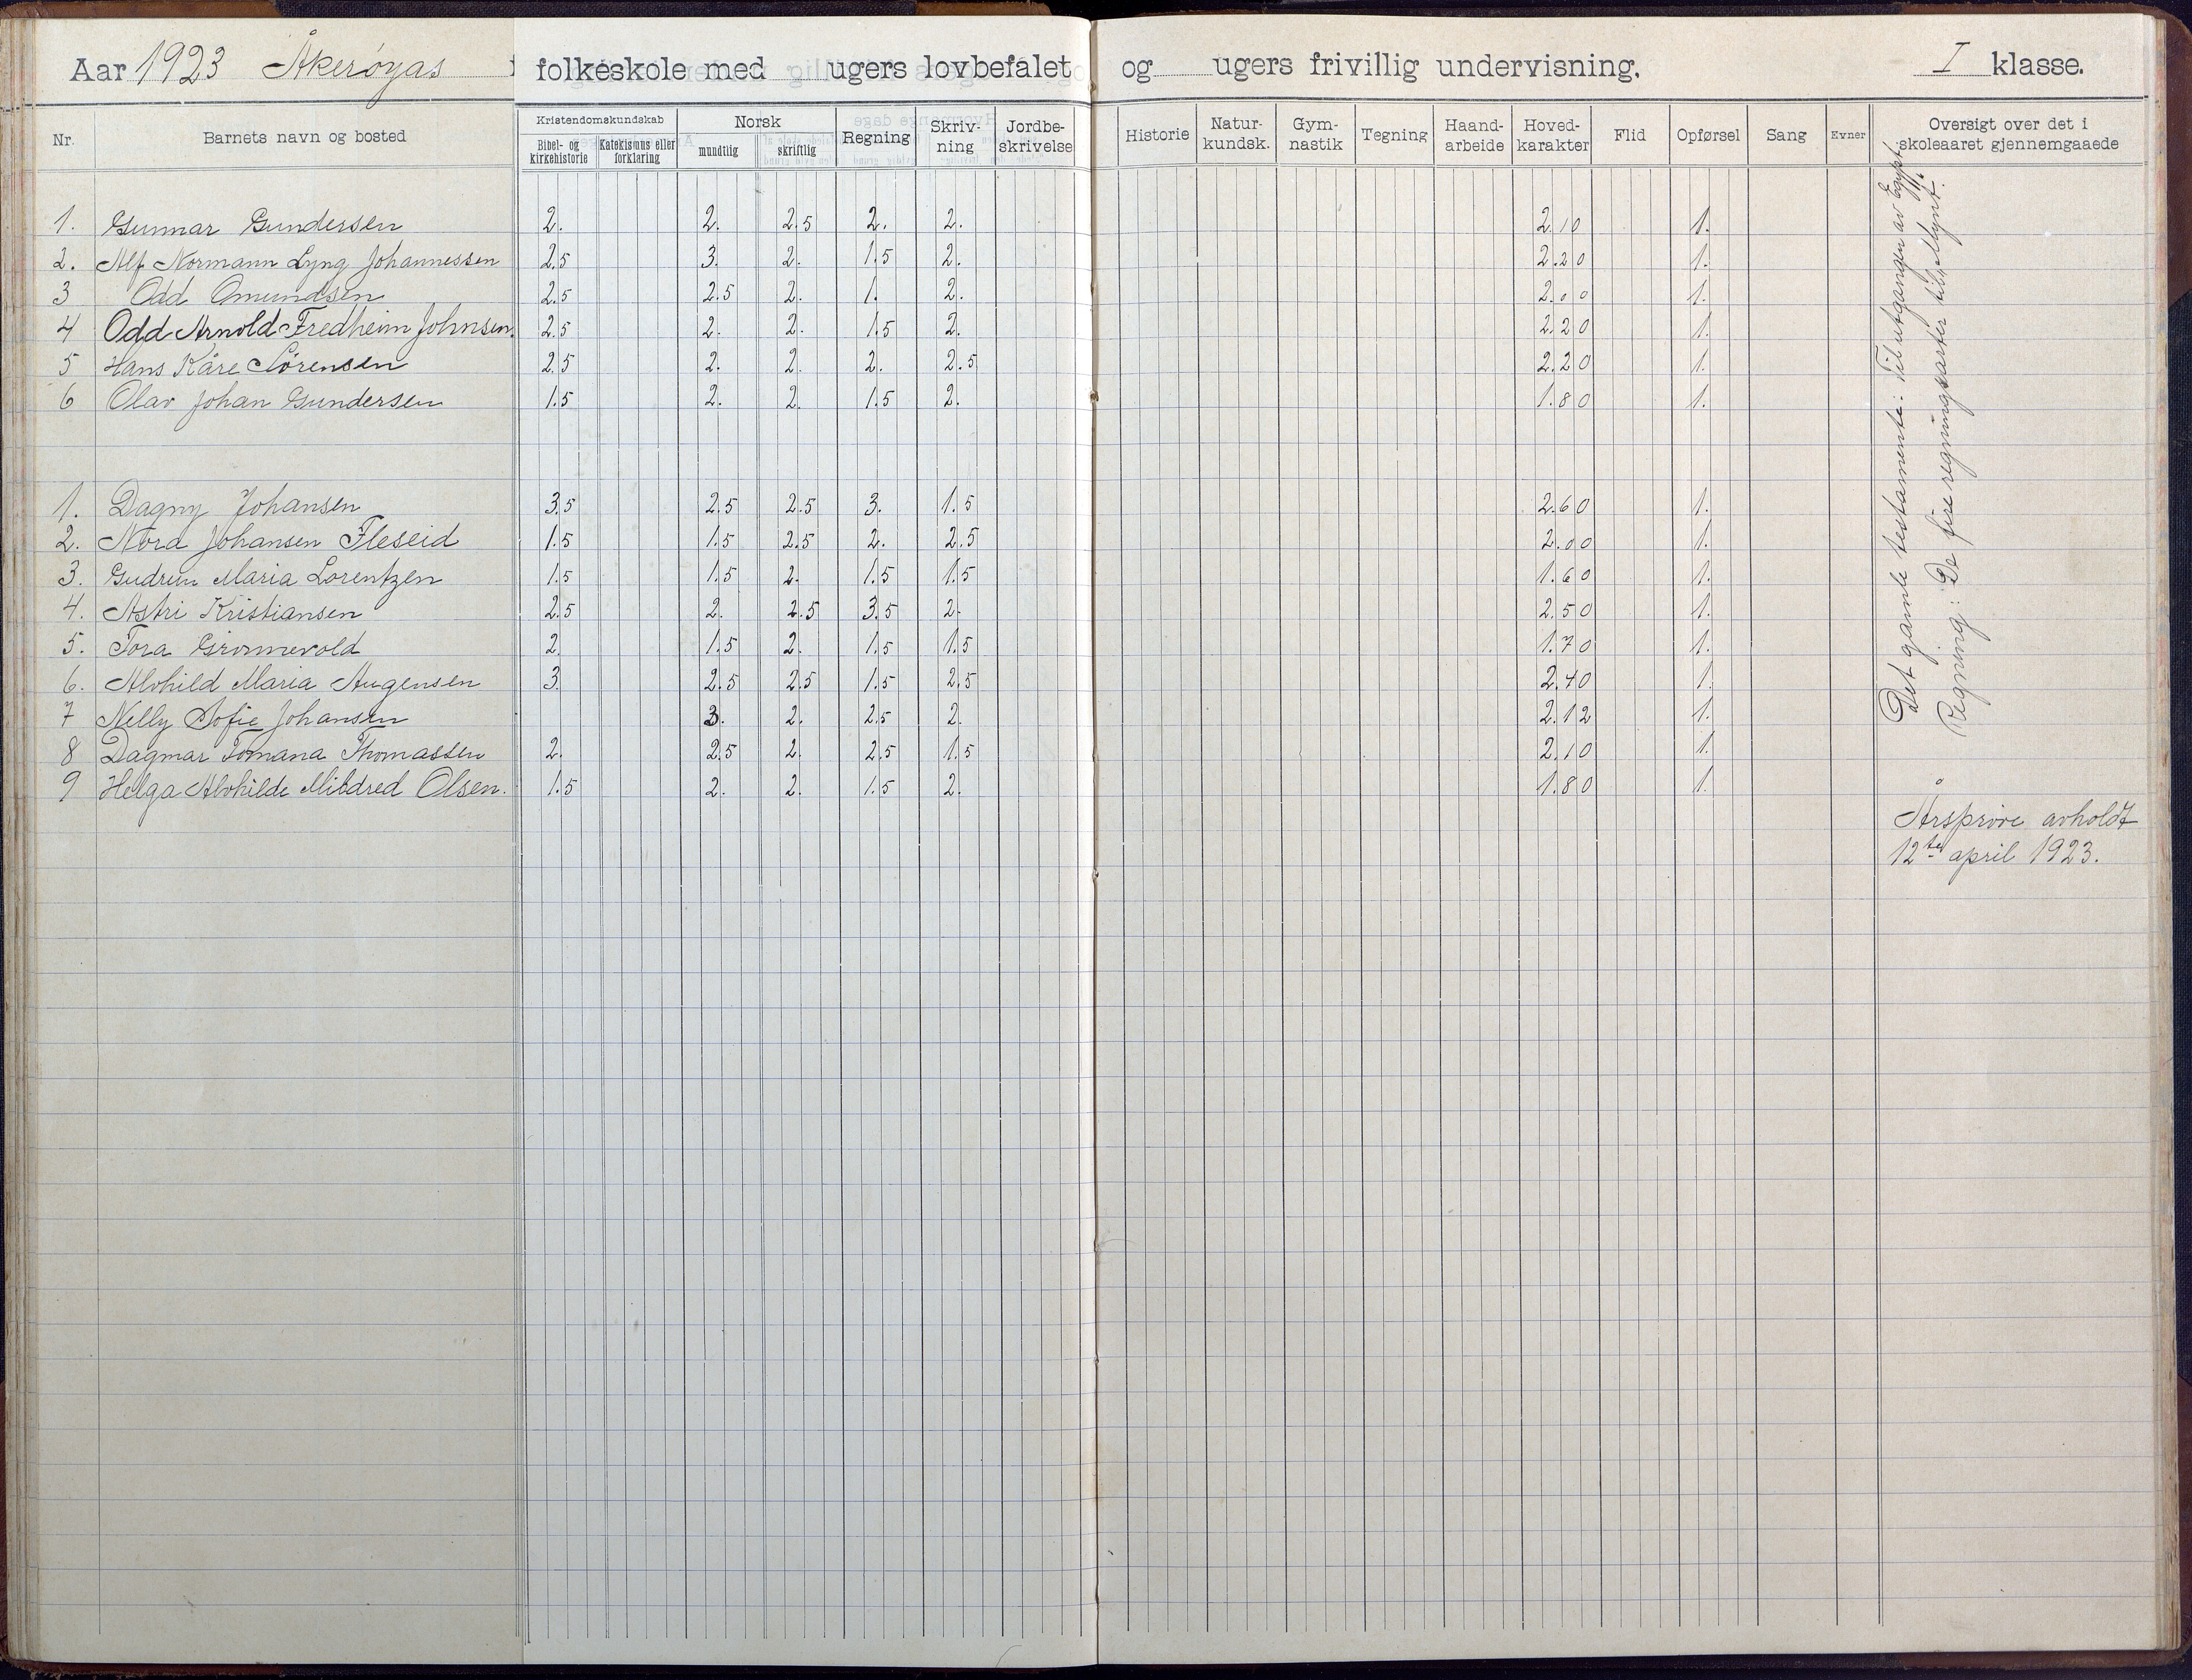 Aar 1923 Åkerøyas folkeskole med ugers lovbefalet og ugers frivillig undervisning. I klasse.
Nr. Barnets navn og bosted Kristendomskundskab Norsk Regning Skriv-ning Jordbe-skrivelse Historie Natur-kundsk. Gym-nastik Tegning Haand-arbeide Hoved-karakter Flid Opførsel Sang Evner Oversigt over det i skoleaaret gjennemgaaede
Bibel- og kirkehistorie Katekismus eller forklaring mundtlig skriftlig
1. Gunnar Gundersen 2. 2. 2.5 2. 2. 2.10 1.
2. Alf Normann Lyng Johannessen 2.5 3. 2. 1.5 2. 2.20 1.
3 Odd Omundsen 2.5 2.5 2. 1. 2. 2.00 1.
4 Odd Arnold Fredheim Johnsen. 2.5 2. 2. 1.5 2. 2.20 1.
5 Hans Kåre Sörensen 2.5 2. 2. 2. 2.5 2.20 1.
6 Olav Johan Gundersen 1.5 2. 2. 1.5 2. 1.80 1.
1. Dagny Johansen 3.5 2.5 2.5 3. 1.5 2.60 1.
2. Nora Johansen Fleseid 1.5 1.5 2.5 2. 2.5 2.00 1.
3. Gudrun Maria Lorentzen 1.5 1.5 2. 1.5 1.5 1.60 1.
4. Astri Kristiansen 2.5 2. 2.5 3.5 2. 2.50 1.
5. Tora Grimmevold 2. 1.5 2. 1.5 1.5 1.70 1.
6. Alvhild Maria Augensen 3. 2.5 2.5 1.5 2.5 2.40 1.
7 Nelly Sofie Johansen 3. 2. 2.5 2. 2.12 1.
8 Dagmar Tomana Thomassen 2. 2.5 2. 2.5 1.5 2.10 1.
9 Helga Alvhilde Mildred Olsen. 1.5 2. 2. 1.5 2. 1.80 1.
Det gamle testamente: Til utgangen av Egypt.
Regning: De fire regningsarter til „Mynt".
Årsprøve avholdt
12te april 1923.